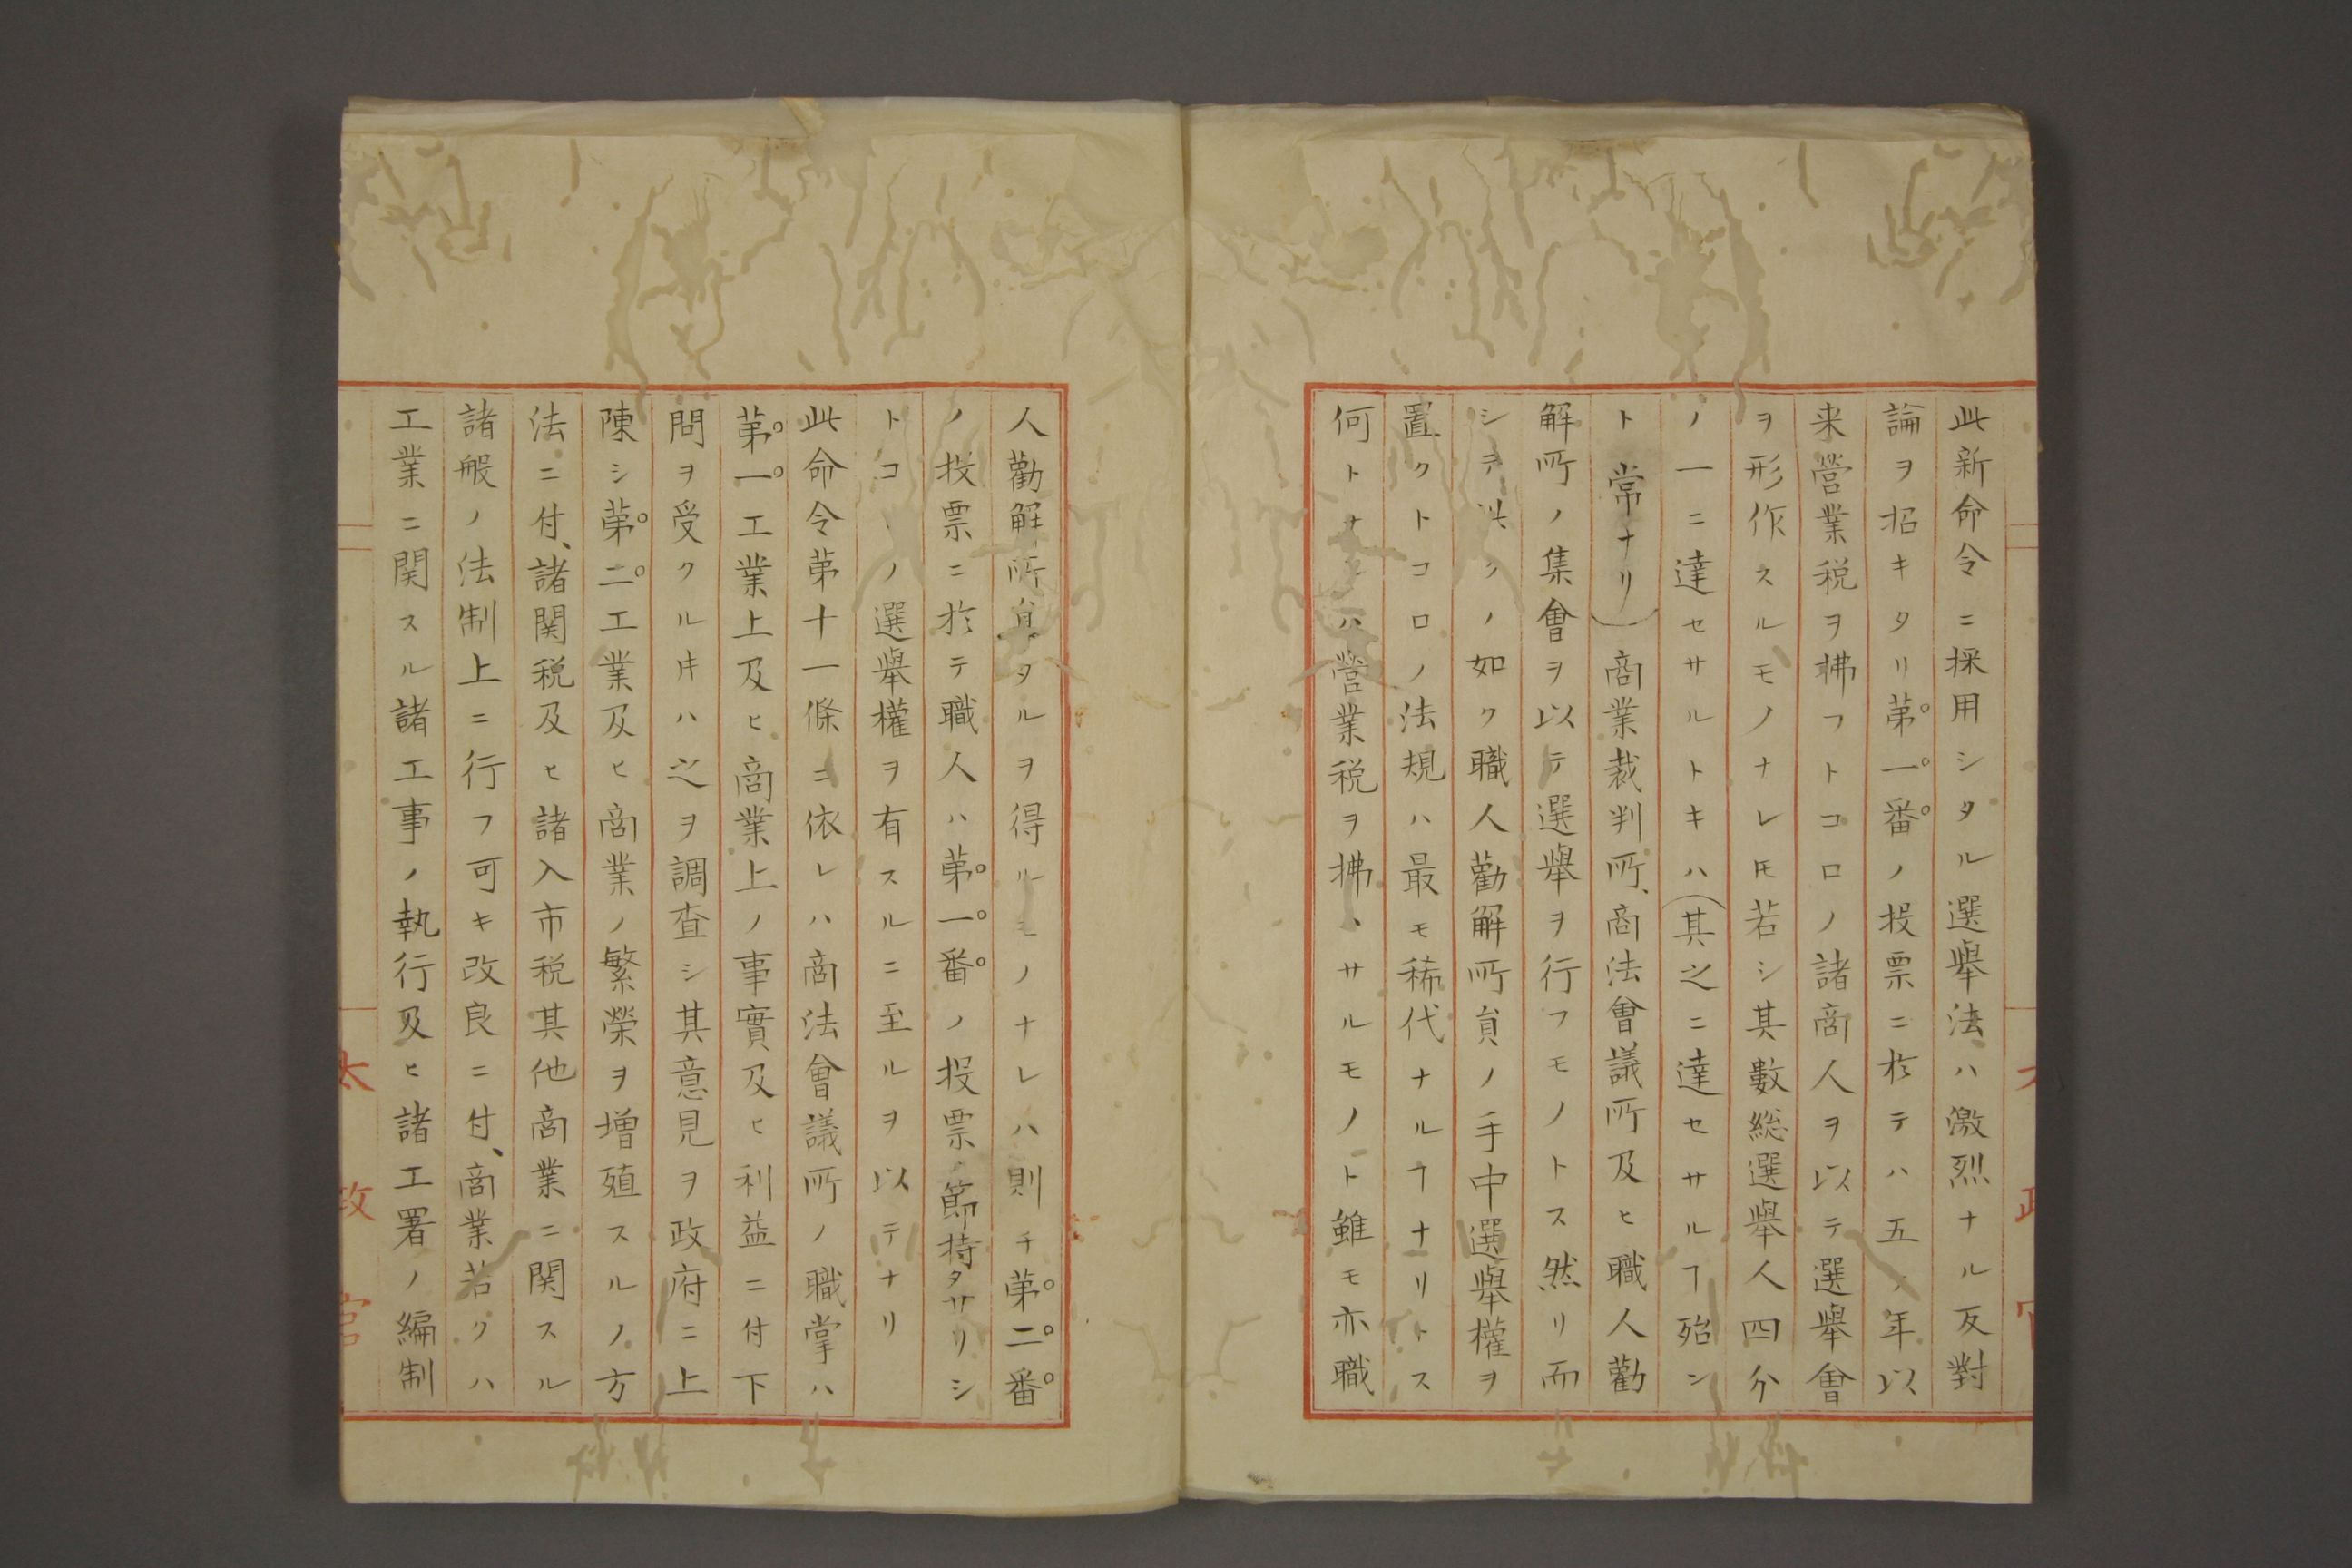 此新命令ニ採用シタル選擧法ハ激烈ナル反對
論ヲ招キタリ第一番ノ投票ニ於テハ五ノ年以
来營業税ヲ拂フトコロノ諸商人ヲ以テ選擧會
ヲ形作スルモノナレ𪜈若シ其數総選擧人四分
ノ一ニ達セサルトキハ(其之ニ達セサルヿ殆ン
ト常ナリ)商業裁判所、商法會議所及ヒ職人勸
解所ノ集會ヲ以テ選擧ヲ行フモノトス然リ而
シテ此クノ如ク職人勸解所員ノ手中選擧權ヲ
置クトコロノ法規ハ最モ稀代ナルヿナリトス
何トナレハ營業税ヲ拂ハサルモノト雖モ亦職
人勸解所員タルヲ得ルモノナレハ則チ第二番
ノ投票ニ於テ職人ハ第一番ノ投票ノ節持タサリシ
トコヽノ選擧權ヲ有スルニ至ルヲ以テナリ
此命令第十一條ニ依レハ商法會議所ノ職掌ハ
第一工業上及ヒ商業上ノ事實及ヒ利益ニ付下
問ヲ受クル𪜈ハ之ヲ調査シ其意見ヲ政府ニ上
陳シ第二工業及ヒ商業ノ繁榮ヲ増殖スルノ方
法ニ付、諸関税及ヒ諸入市税其他商業ニ関スル
諸般ノ法制上ニ行フ可キ改良ニ付、商業若クハ
工業ニ関スル諸工事ノ執行及ヒ諸工署ノ編制
太政官